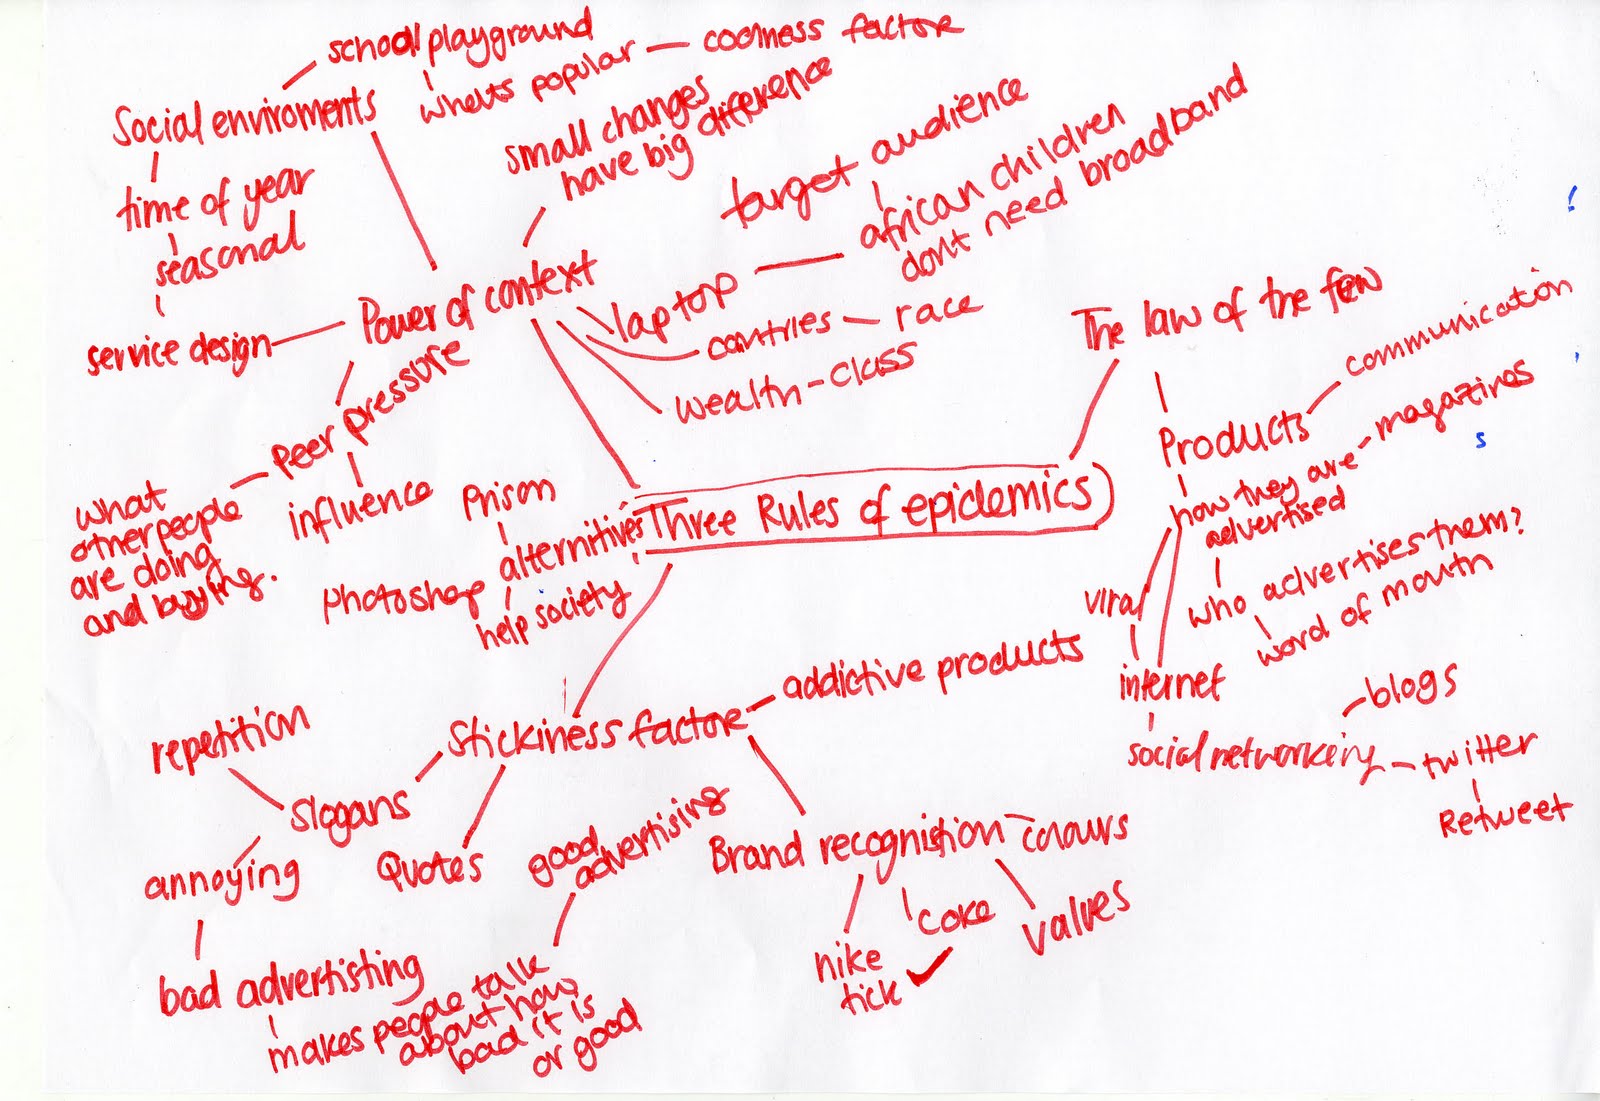 school playground
whats popular — coolness factore
Social enviroments
time of year
seasonal
service design
small changes
have big difference
target audience
african children
dont need broadband
Power of context
laptop
countries — race
wealth-class
Peer pressure
influence
what
other people
are doing
and buying.
The law of the few
Products
communication
how they are
advertised
magazines
who advertises them?
word of mouth
viral
internet
social networking
blogs
twitter
Retweet
Three Rules of epidemics
Prison
alternitives
Photoshop
help society
Stickiness factore
addictive products
repetition
Slogans
annoying
bad advertisting
makes people talk
about how
bad it is
or good
Quotes
good
advertising
Brand recognistion
colours
nike
tick ✓
coke
values
s